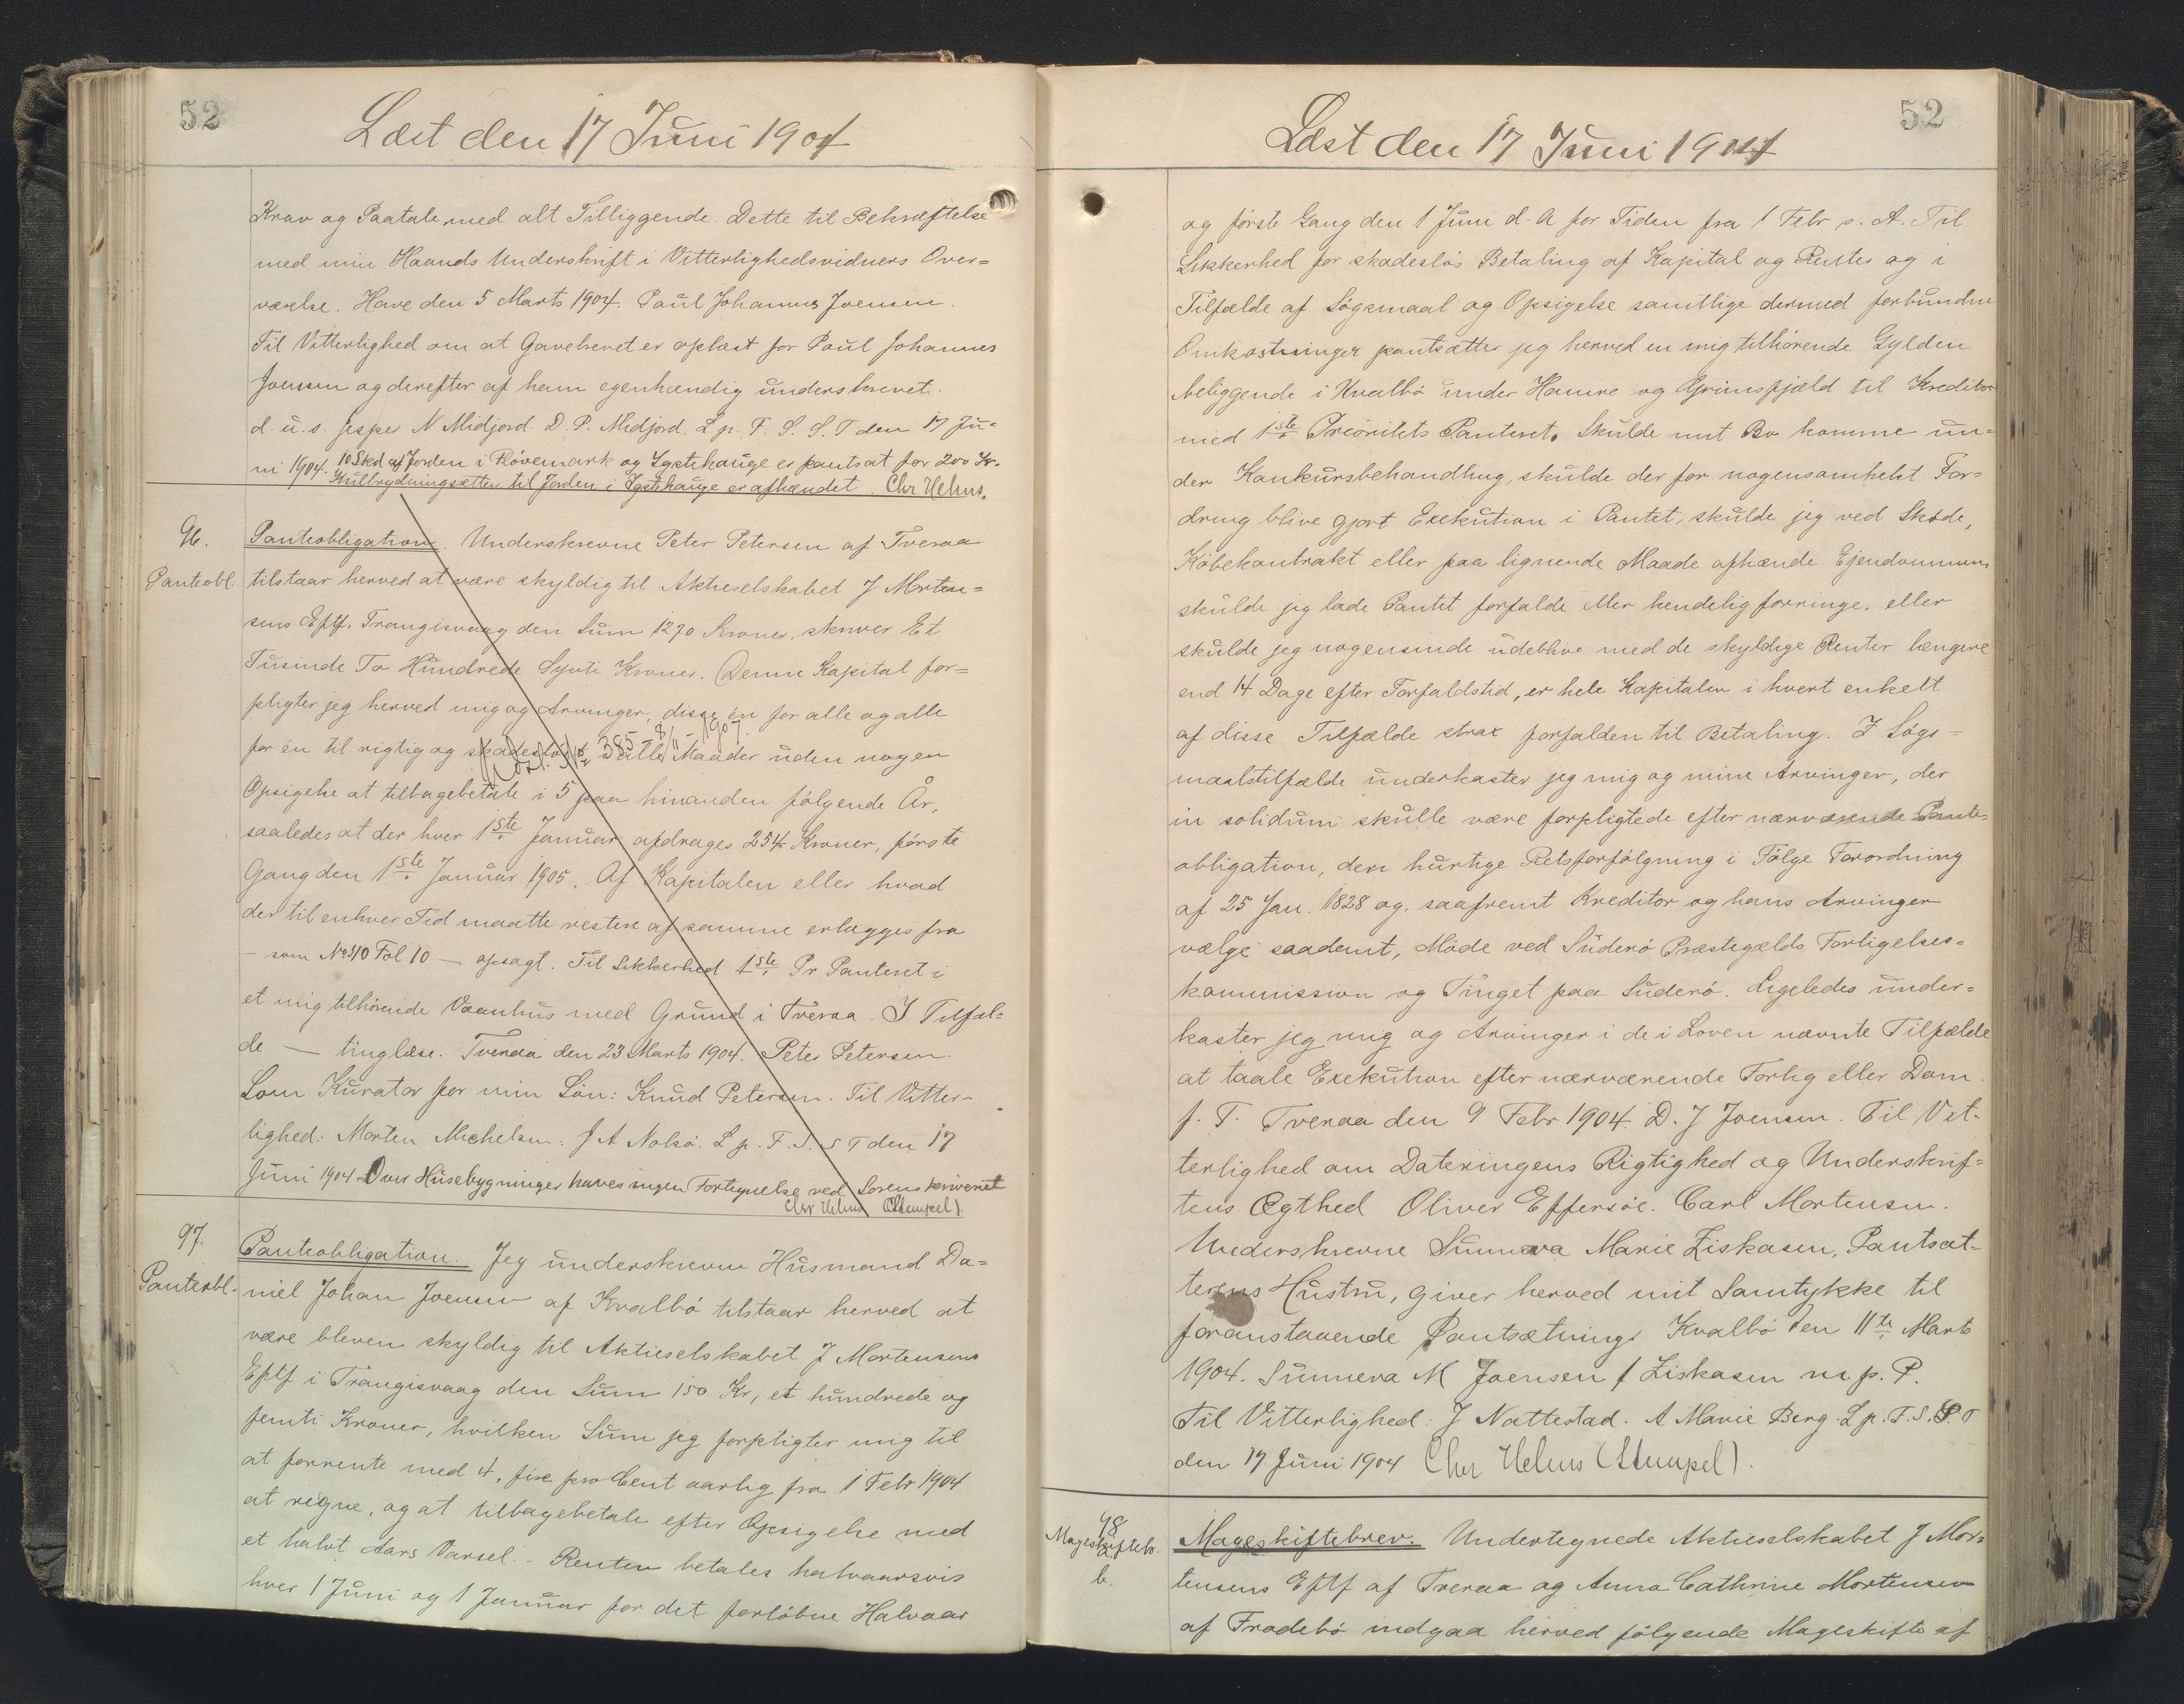 52
Læst den 17 Juni 1904
Krav og Paatale med alt Tilliggende. Dette til Bekræftelse
med min Haands Underskrift i Vitterlighedsvidners Over=
værelse. Hove den 5 Marts 1904. Paul Johannes Joensen.
Til Vitterlighed om at Gavebrevet er oplæst for Paul Johannes
Joensen og derefter af ham egenhændig underskrevet.
d. u. s. Jesper N Midjord. D. P. Midjord. L p. F. S. S. T den 17 Ju-
ni 1904. 10 Skd af Jorden i Hovemark og Lystehauge er pantsat for 200 Kr.
Kulbrydningsretten til Jorden i Lystehauge er afhændet. Chr Helms.
96.
Panteobl.
Panteobligation. Underskrevne Peter Petersen af Tveraa
tilstaar herved at være skyldig til Aktieselskabet J Morten=
sens Eftf. Trangisvaag den Sum 1270 Kroner, skriver Et
Tusinde To Hundrede Syvti Kroner. Denne Kapital for=
pligter jeg herved mig og Arvinger, disse én for alle og alle
for én til rigtig og skadesløs i alle Maader uden nogen
385 8/11 - 1907.
Opsigelse at tilbagebetale i 5 paa hinanden følgende År,
saaledes at der hver 1ste Januar afdrages 254 Kroner, første
Gang den 1ste Januar 1905. Af Kapitalen eller hvad
der til enhver Tid maatte restere af samme erlægges fra
- som No 310 Fol 10 - opsagt. Til Sikkerhed 1ste Pr Panteret i
et mig tilhørende Vaanhus med Grund i Tveraa. I Tilfæl=
de — tinglæse. Tveraa den 23 Marts 1904. Peter Petersen.
Som Kurator for min Søn: Knud Petersen. Til Vitter-
lighed: Morten Michelsen: J A Nolsø. L p. F. S. S T den 17
Juni 1904 Over Husebygninger haves ingen Fortegnelse ved Sorenskriveriet
Chr Helms (Stempel).
97.
Panteobl.
Panteobligation. Jeg underskrevne Husmand Da=
niel Johan Joensen af Kvalbø tilstaar herved at
være bleven skyldig til Aktieselskabet J Mortensens
Eftf i Trangisvaag den Sum 150 Kr, et hundrede og
femti Kroner, hvilken Sum jeg forpligter mig til
at forrente med 4, fire pro Cent aarlig fra 1 Febr 1904
at regne, og at tilbagebetale efter Opsigelse med
et halvt Aars Varsel. - Renten betales halvaarsvis
hver 1 Juni og 1 Januar for det forløbne Halvaar
52
Læst den 17 Juni 1904
og første Gang den 1 Juni d. A for Tiden fra 1 Febr s. A. Til
Sikkerhed for skadesløs Betaling af Kapital og Renter og i
Tilfælde af Søgsmaal og Opsigelse samtlige dermed forbundne
Omkostninger pantsætter jeg herved en mig tilhørende Gylden
beliggende i Kvalbø under Hamre og Grimsfjæld til Kreditor
med 1ste Prioritets Panteret. Skulde mit Bo komme un=
der Konkursbehandling, skulde der for nogensomhelst For=
dring blive gjort Exekution i Pantet, skulde jeg ved Skøde,
Købekontrakt eller paa lignende Maade afhænde Ejendommen,
skulde jeg lade Pantet forfalde eller kendelig forringe, eller
skulde jeg nogensinde udeblive med de skyldige Renter længere
end 14 Dage efter Forfaldstid, er hele Kapitalen i hvert enkelt
af disse Tilfælde strax forfalden til Betaling. I Søgs=
maalstilfælde underkaster jeg mig og mine Arvinger, der
in solidum skulle være forpligtede efter nærværende Pante=
obligation, den hurtige Retsforfølgning i Følge Forordning
af 25 Jan. 1828 og, saafremt Kreditor og hans Arvinger
vælge saadant, Møde ved Suderø Præstegælds Forligelses=
kommission og Tinget paa Suderø. Ligeledes under=
kaster jeg mig og Arvinger i de i Loven nævnte Tilfælde
at taale Exekution efter nærværende Forlig eller Dom.
p. T. Tveraa den 9 Febr 1904. D. J Joensen. Til Vit-
terlighed om Dateringens Rigtighed og Underskrif=
tens Ægthed Oliver Effersøe. Carl Mortensen.
Underskrevne Sunneva Marie Ziskasen, Pantsæt-
terens Hustru, giver herved mit Samtykke til
foranstaaende Pantsætning. Kvalbø den 11te Marts
1904. Sunneva M Joensen f Ziskasen m. p. P.
Til Vitterlighed: J Nattestad. A Marie Berg. L p. F. S. S. T
den 17 Juni 1904 Chr Helms (Stempel).
98.
Mageskifteb.
b.
Mageskiftebrev. Undertegnede Aktieselskabet J Mor=
tensens Eftf af Tveraa og Anna Cathrine Mortensen
af Frodebø indgaa herved følgende Mageskifte af